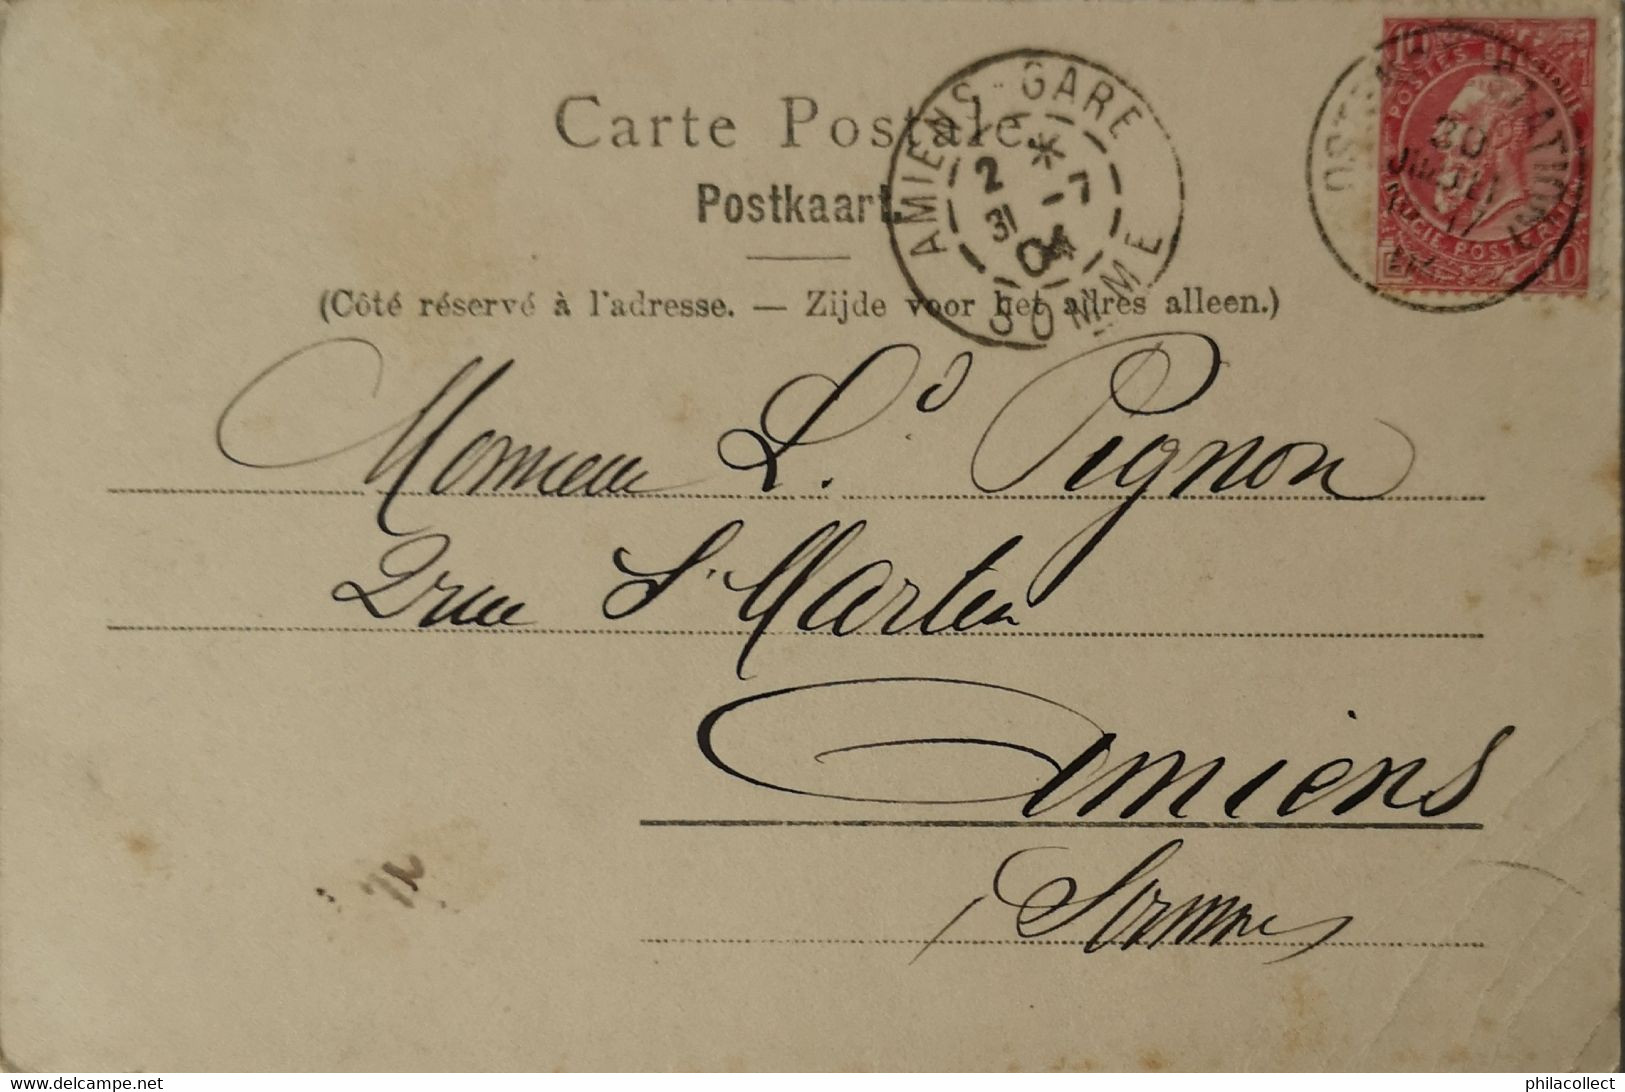 Carte Postale
Postkaart
(Côté réservé à l'adresse. — Zijde voor het adres alleen.)
AMIENS-GARE
2 * -7
31 04
SOMME
10 10
POSTES
30
JUIL
17
POSTERIJ
10
Monsieur L.d Pignon
2 rue St Martin
Amiens
(Somme)
philacollect